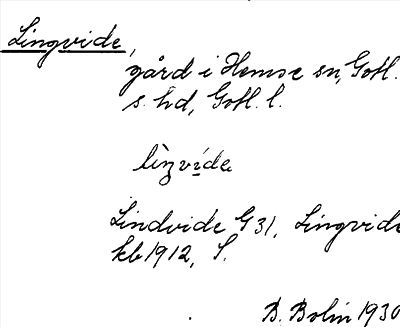 Lingvide,
gård i Hemse sn, Gotl.
s. hd, Gotl. l.
Lindvide G 31, Lingvide
kb 1912, S.
B. Bolin 1930